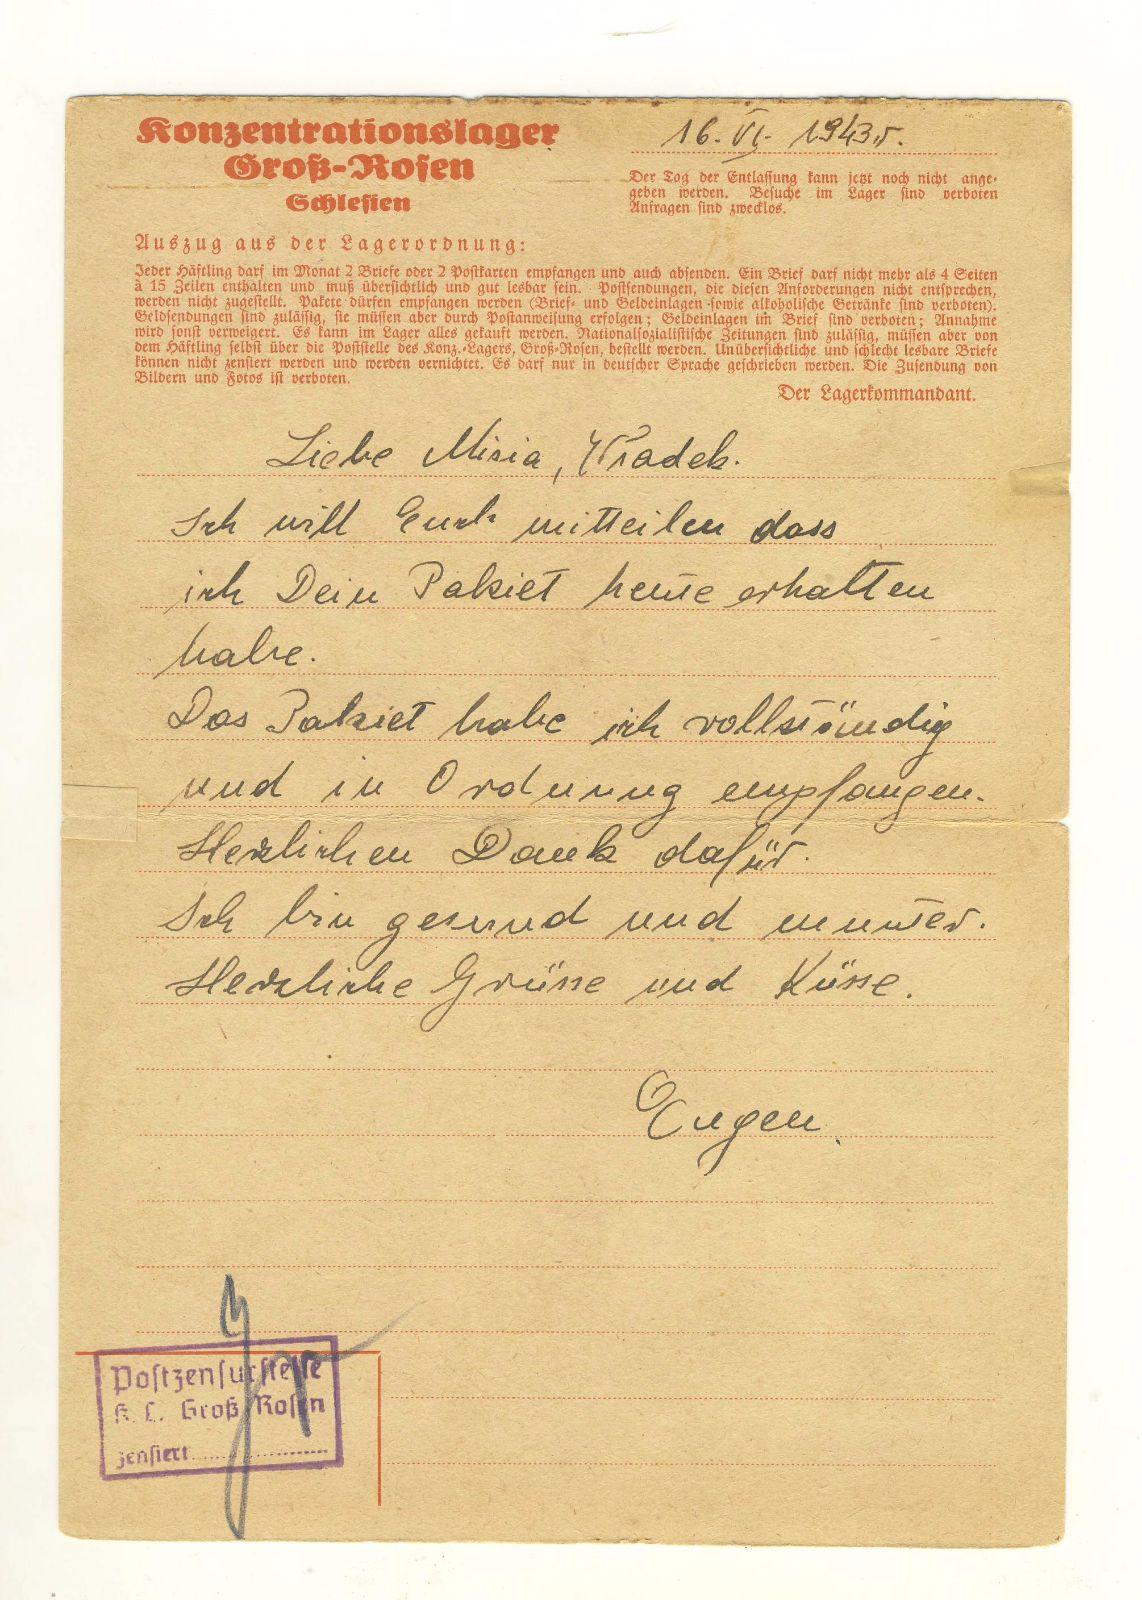 Konzentrationslager
Groß-Rosen
Schlesien
16. VI. 1943 r.
Der Tag der Entlassung kann jetzt noch nicht ange-
geben werden. Besuche im Lager sind verboten
Anfragen sind zwecklos.
Auszug aus der Lagerordnung:
Jeder Häftling darf im Monat 2 Briefe oder 2 Postkarten empfangen und auch absenden. Ein Brief darf nicht mehr als 4 Seiten
à 15 Zeilen enthalten und muß übersichtlich und gut lesbar sein. Postsendungen, die diesen Anforderungen nicht entsprechen,
werden nicht zugestellt. Pakete dürfen empfangen werden (Brief- und Geldeinlagen sowie alkoholische Getränke sind verboten).
Geldsendungen sind zulässig, sie müssen aber durch Postanweisung erfolgen; Geldeinlagen im Brief sind verboten; Annahme
wird sonst verweigert. Es kann im Lager alles gekauft werden. Nationalsozialistische Zeitungen sind zulässig, müssen aber von
dem Häftling selbst über die Poststelle des Konz.-Lagers, Groß-Rosen, bestellt werden. Unübersichtliche und schlecht lesbare Briefe
können nicht zensiert werden und werden vernichtet. Es darf nur in deutscher Sprache geschrieben werden. Die Zusendung von
Bildern und Fotos ist verboten.
Der Lagerkommandant.
Liebe Misia, Władek.
Ich will Euch mitteilen dass
ich Dein Pakiet heute erhalten
habe.
Das Pakiet habe ich vollständig
und in Ordnung empfangen.
Herzlichen Dank dafür.
Ich bin gesund und munter.
Herzliche Grüsse und Küsse.
Eugen.
Postzensurstelle
K. L. Groß Rosen
zensiert